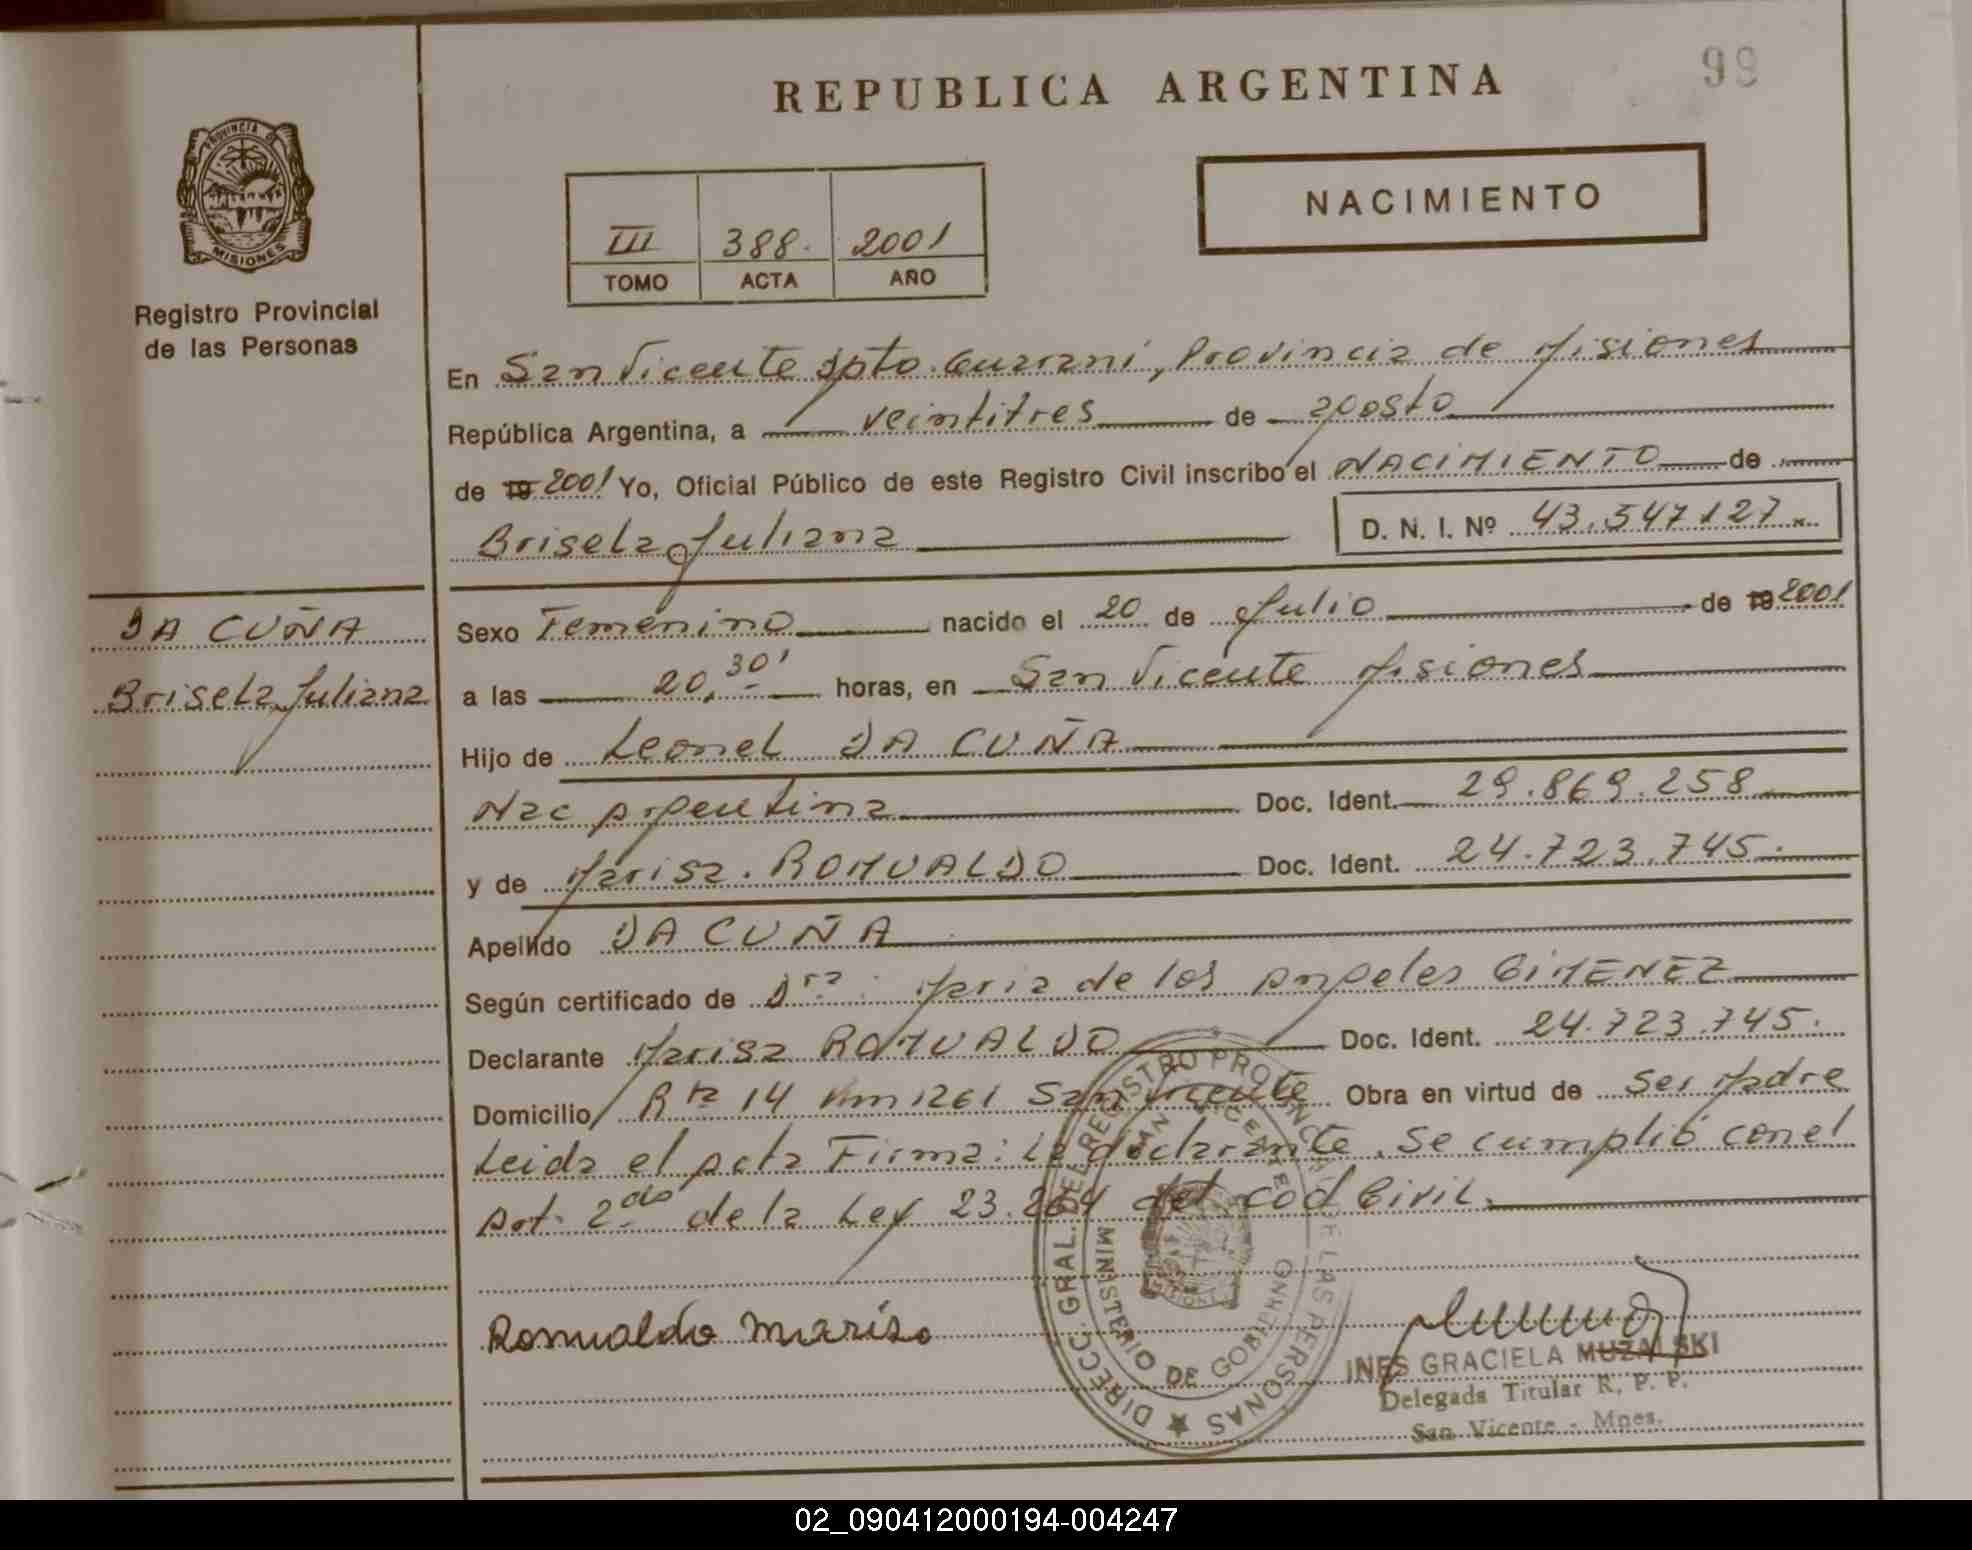 REPUBLICA ARGENTINA
99
PROVINCIA DE
MISIONES
Registro Provincial
de las Personas
III 388. 2001
TOMO ACTA AÑO
NACIMIENTO
En San Vicente Dpto. Guarani, Provincia de Misiones
República Argentina, a veintitres de agosto
de 19 2001 Yo, Oficial Público de este Registro Civil inscribo el NACIMIENTO de
Brisela Juliana D. N. I. Nº 43.547.127.
DA CUÑA
Brisela Juliana
Sexo Femenino nacido el 20 de Julio de 19 2001
a las 20,30' horas, en San Vicente Misiones
Hijo de Leonel DA CUÑA
Nac Argentina Doc. Ident. 29.869.258
y de Marisa. ROMUALDO Doc. Ident. 24.723.745.
Apellido DA CUÑA
Según certificado de Dra: Maria de los Angeles GIMENEZ
Declarante Marisa ROMUALDO Doc. Ident. 24.723.745.
Domicilio Rta 14 Km 1261 San Vicente Obra en virtud de Ser Madre
Leida el Acta Firma: La declarante. Se cumplió con el
Art. 2do de la Ley 23.264 del Cod Civil.
Romualdo Marisa
DIRECC. GRAL. DEL REGISTRO PROVINCIAL DE LAS PERSONAS
SAN VICENTE
MINISTERIO DE GOBIERNO
INES GRACIELA MUZALSKI
Delegada Titular R. P. P.
San Vicente - Mnes.
02_090412000194-004247